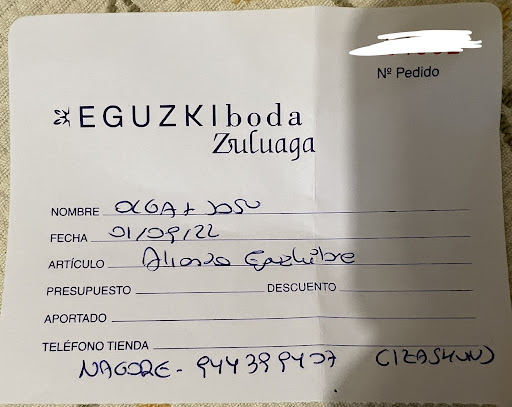 Nº Pedido
EGUZKIboda
Zuluaga
NOMBRE OLGA + JOSU
FECHA 01/09/22
ARTÍCULO Alianza
PRESUPUESTO DESCUENTO
APORTADO
TELÉFONO TIENDA
NAGORE - 944399407 (IZASKUN)